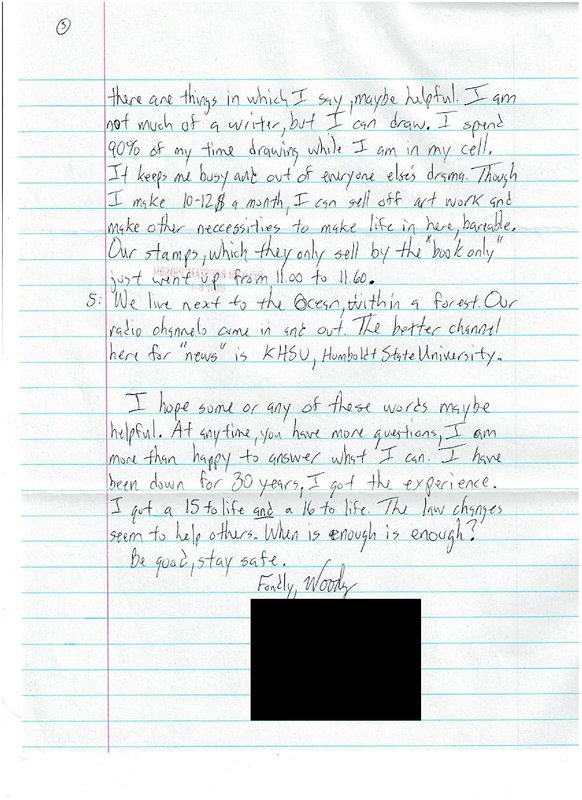 3
there are things in which I say, maybe helpful. I am
not much of a writer, but I can draw. I spend
90% of my time drawing while I am in my cell.
It keeps me busy and out of everyone else's drama. Though
I make 10-12$ a month, I can sell off art work and
make other neccessities to make life in here, bareable.
Our stamps, which they only sell by the "book only"
just went up from 11.00 to 11.60.
5: We live next to the Ocean, within a forest. Our
radio channels come in and out. The better channel
here for "news" is KHSU, Humboldt State University.
I hope some or any of these words maybe
helpful. At anytime, you have more questions, I am
more than happy to answer what I can. I have
been down for 30 years, I got the experience.
I got a 15 to life and a 16 to life. The law changes
seem to help others. When is enough is enough?
Be good, stay safe.
Fondly, Woody